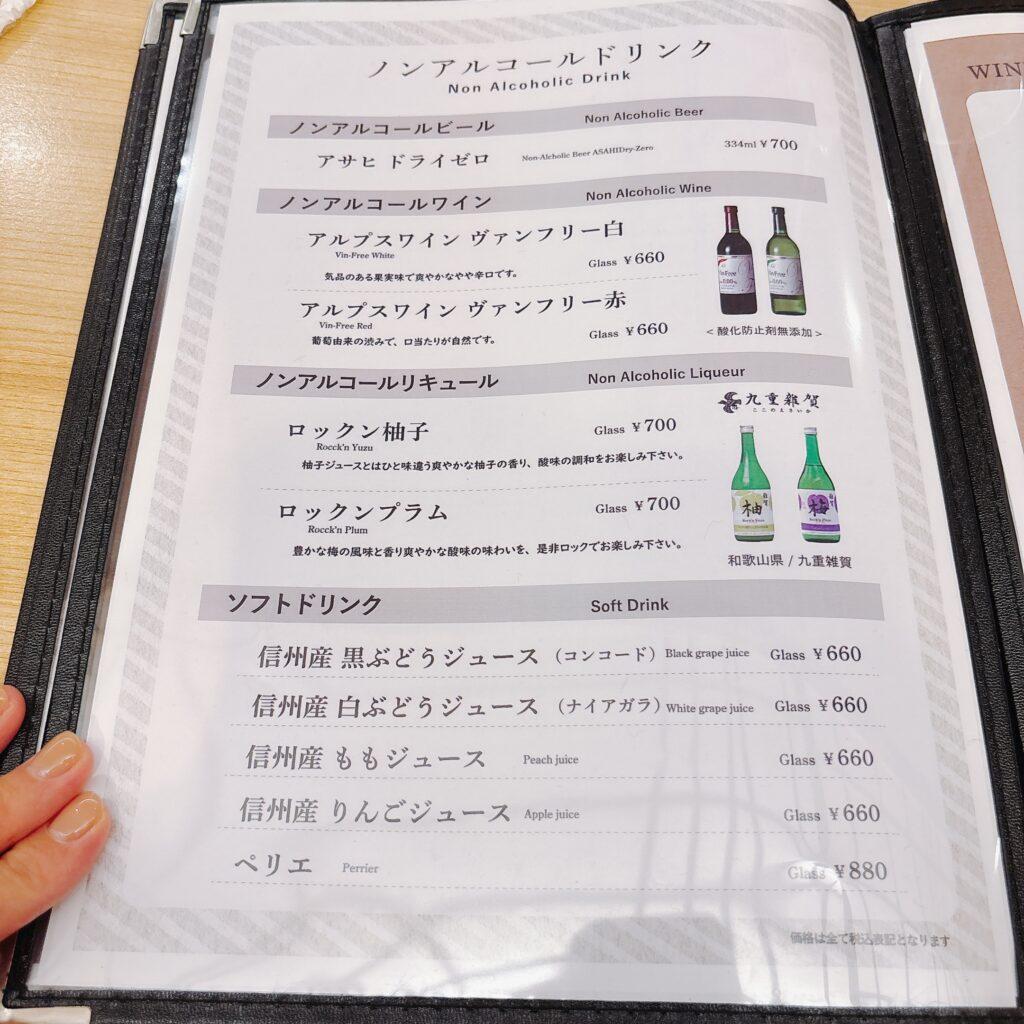 ノンアルコールドリンク
Non Alcoholic Drink
ノンアルコールビール Non Alcoholic Beer
アサヒ ドライゼロ Non-Alcholic Beer ASAHIDry-Zero 334ml ¥700
ノンアルコールワイン Non Alcoholic Wine
アルプスワイン ヴァンフリー白
Vin-Free White
Glass ¥660
気品のある果実味で爽やかなやや辛口です。
アルプスワイン ヴァンフリー赤
Vin-Free Red
Glass ¥660
葡萄由来の渋みで、口当たりが自然です。
VinFree
VinFree
<酸化防止剤無添加>
ノンアルコールリキュール Non Alcoholic Liqueur
九重雜賀
ここのえさいか
ロックン柚子
Rocck'n Yuzu
Glass ¥700
柚子ジュースとはひと味違う爽やかな柚子の香り、酸味の調和をお楽しみ下さい。
ロックンプラム
Rocck'n Plum
Glass ¥700
豊かな梅の風味と香り爽やかな酸味の味わいを、是非ロックでお楽しみ下さい。
柚
梅
和歌山県 / 九重雑賀
ソフトドリンク Soft Drink
信州産 黒ぶどうジュース (コンコード) Black grape juice Glass ¥660
信州産 白ぶどうジュース (ナイアガラ) White grape juice Glass ¥660
信州産 ももジュース Peach juice Glass ¥660
信州産 りんごジュース Apple juice Glass ¥660
ペリエ Perrier Glass ¥880
価格は全て税込表記となります
WIN